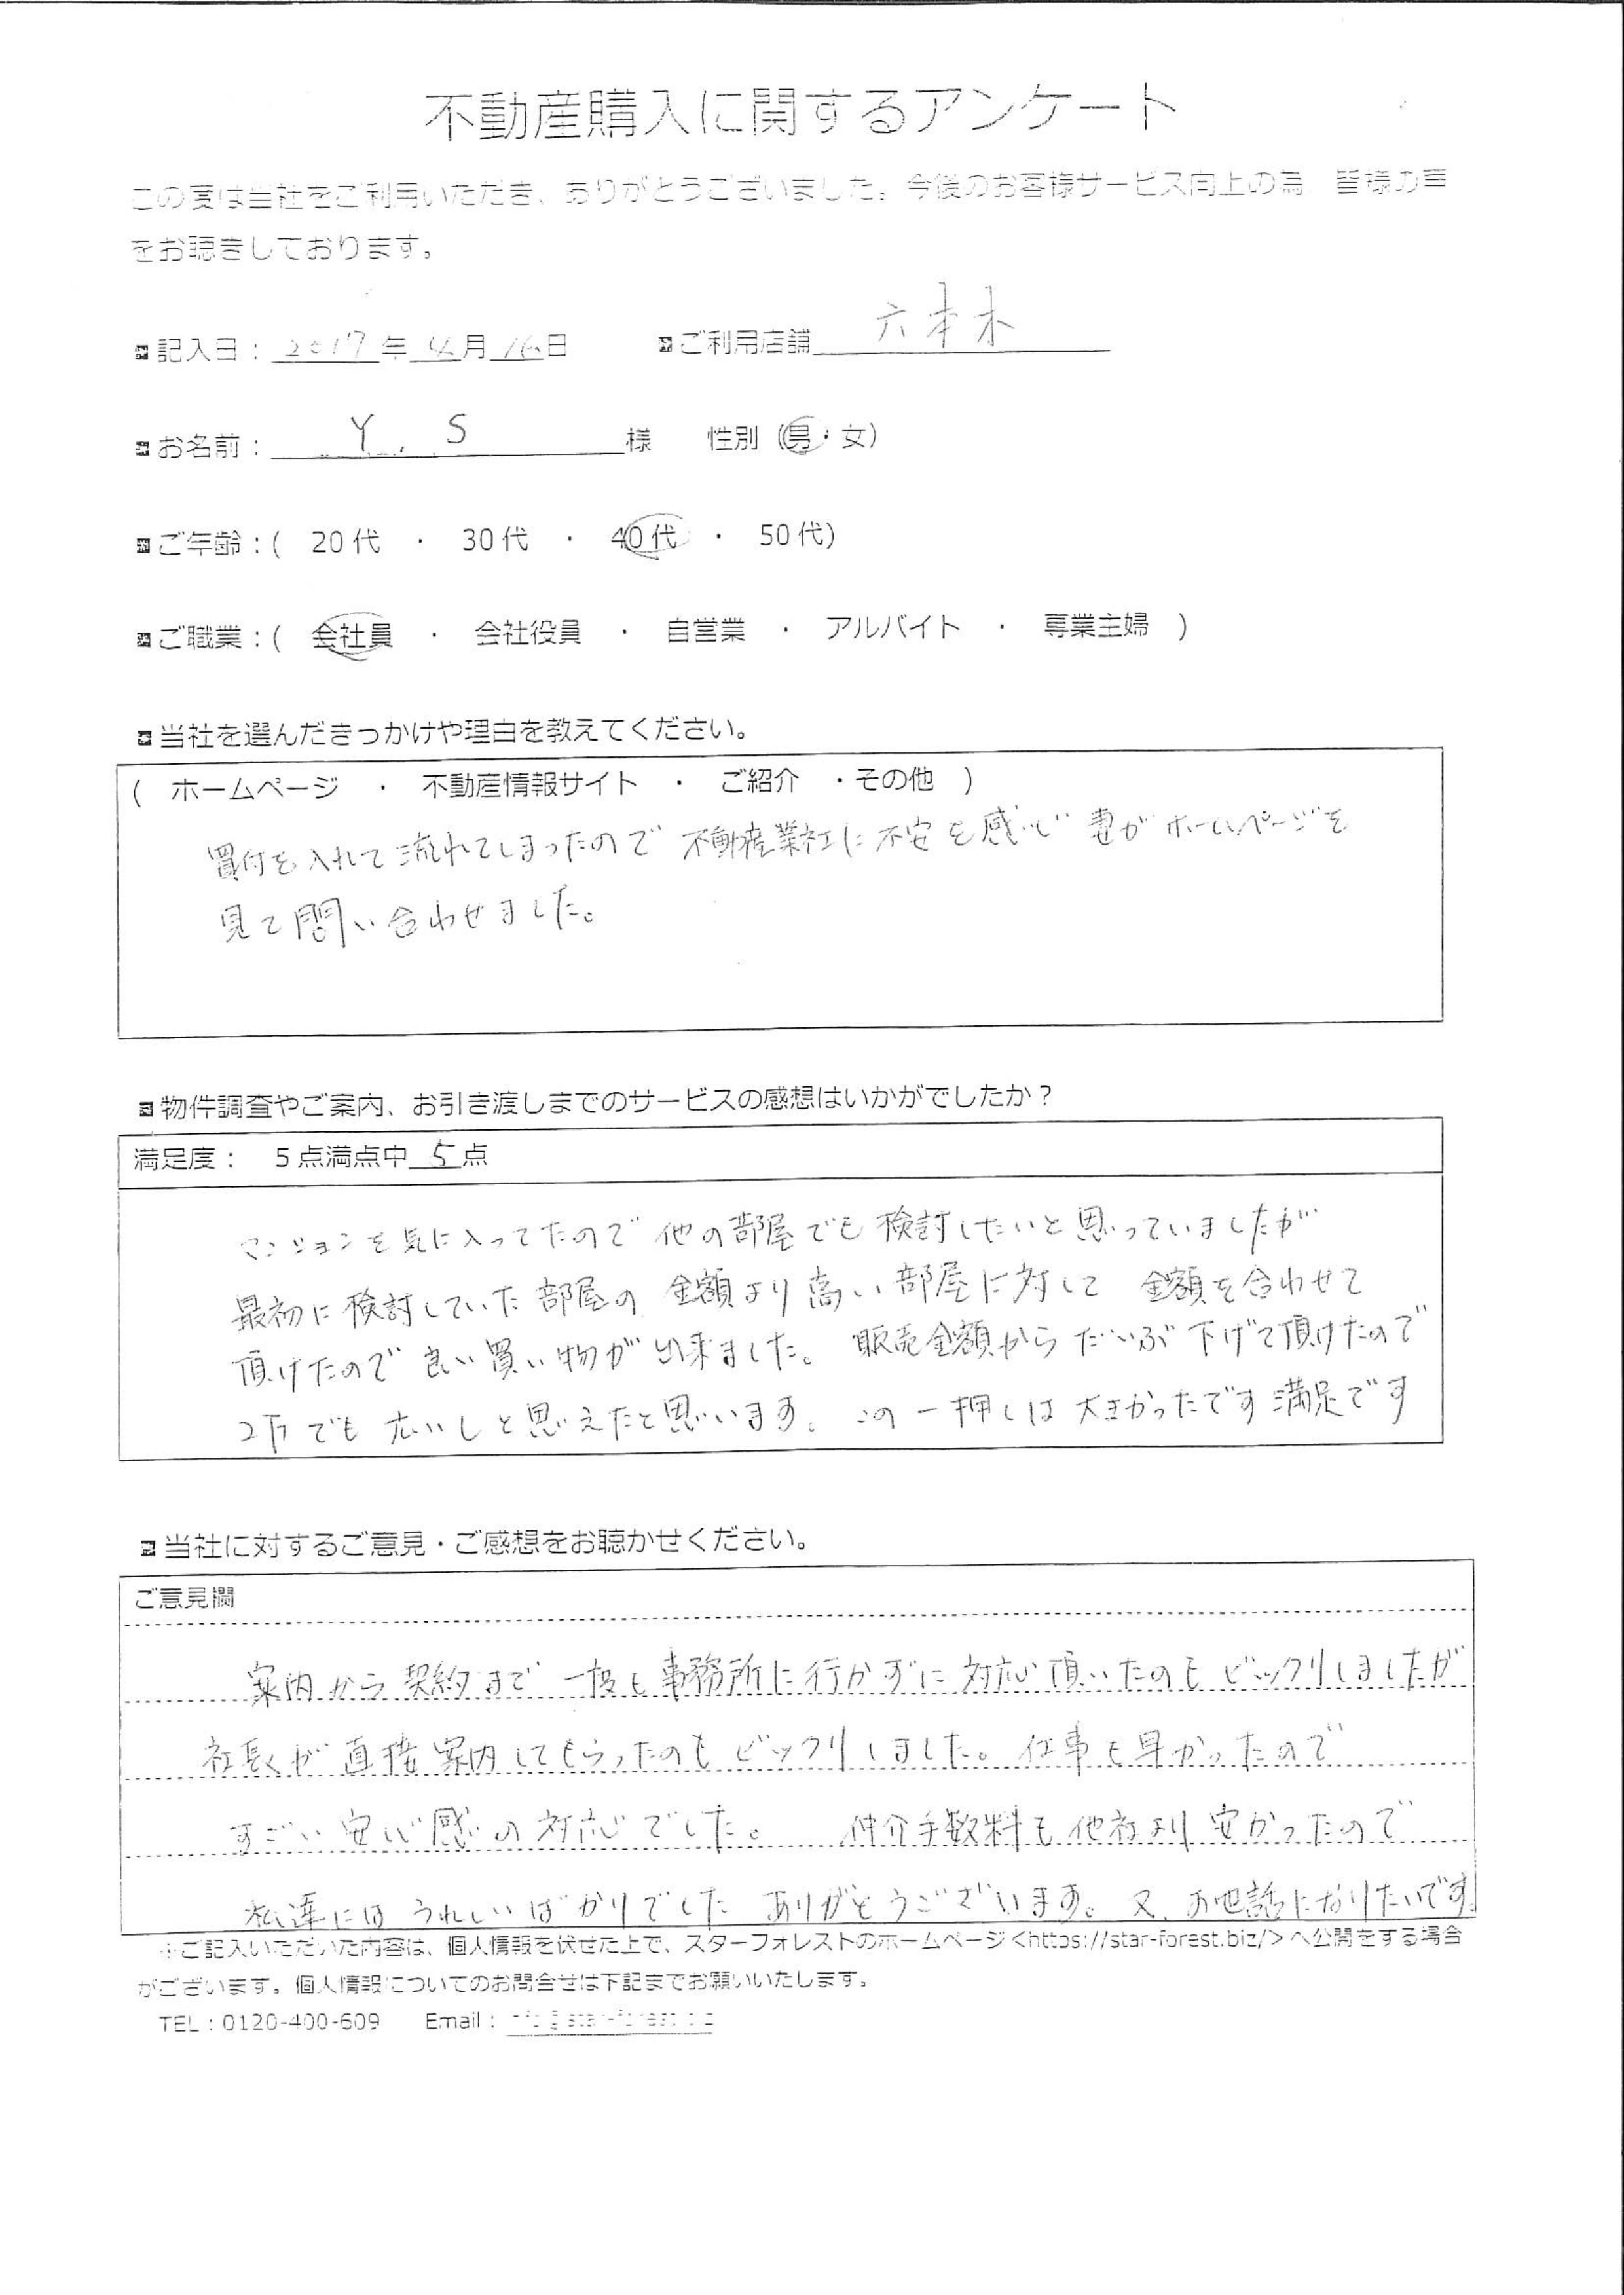 不動産購入に関するアンケート
この度は当社をご利用いただき、ありがとうございました。今後のお客様サービス向上の為 皆様の声
をお聴きしております。
記入日：2017年4月16日 ご利用店舗 六本木
お名前：Y.S様 性別（男・女）
ご年齢：( 20代 ・ 30代 ・ 40代 ・ 50代)
ご職業：( 会社員 ・ 会社役員 ・ 自営業 ・ アルバイト ・ 専業主婦 )
当社を選んだきっかけや理由を教えてください。
( ホームページ ・ 不動産情報サイト ・ ご紹介 ・その他 )
買付を入れて流れてしまったので 不動産業社に不安を感じ 妻がホームページを
見て問い合わせました。
物件調査やご案内、お引き渡しまでのサービスの感想はいかがでしたか？
満足度： 5点満点中5点
マンションを気に入ってたので 他の部屋でも検討したいと思っていましたが
最初に検討していた部屋の 金額より高い部屋に対して 金額を合わせて
頂けたので 良い買い物が出来ました。販売金額から だいぶ下げて頂けたので
でも 広いしと思えたと思います。この一押しは大きかったです 満足です
当社に対するご意見・ご感想をお聴かせください。
ご意見欄
案内から契約まで 一度も事務所に行かずに対応頂いたのもビックリしましたが
社長が直接案内してもらったのもビックリしました。仕事も早かったので
すごい安心感の対応でした。 仲介手数料も他社より安かったので
私達にはうれしいばかりでした ありがとうございます。又、お世話になりたいです。
※ご記入いただいた内容は、個人情報を伏せた上で、スターフォレストのホームページ<https://star-forest.biz/>へ公開をする場合
がございます。個人情報についてのお問合せは下記までお願いいたします。
TEL：0120-400-609 Email：info@star-forest.biz